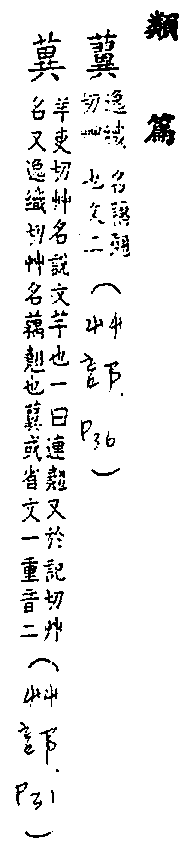 類篇
逸織切艸名語翹也文二（艸部. P36）
䔬
羊吏切艸名說文芓也一曰連翹又於記切艸
名又逸織切艸名藕翹也或省文一重音二（艸部. P31）